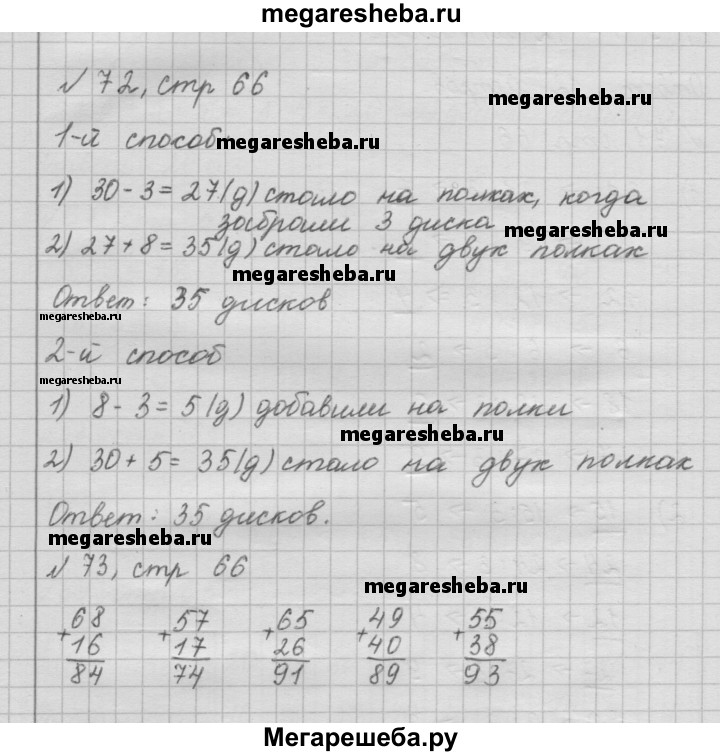 megaresheba.ru
№ 72, стр 66
megaresheba.ru
1-й способ
megaresheba.ru
1) 30 - 3 = 27(д) стало на полках, когда
забрали 3 диска
megaresheba.ru
2) 27 + 8 = 35(д) стало на двух полках
megaresheba.ru
Ответ: 35 дисков
megaresheba.ru
2-й способ
megaresheba.ru
1) 8 - 3 = 5(д) добавили на полки
megaresheba.ru
2) 30 + 5 = 35(д) стало на двух полках
Ответ: 35 дисков.
megaresheba.ru
№ 73, стр 66
megaresheba.ru
68 57 65 49 55
+ + + + +
16 17 26 40 38
84 74 91 89 93
Мегарешеба.ру